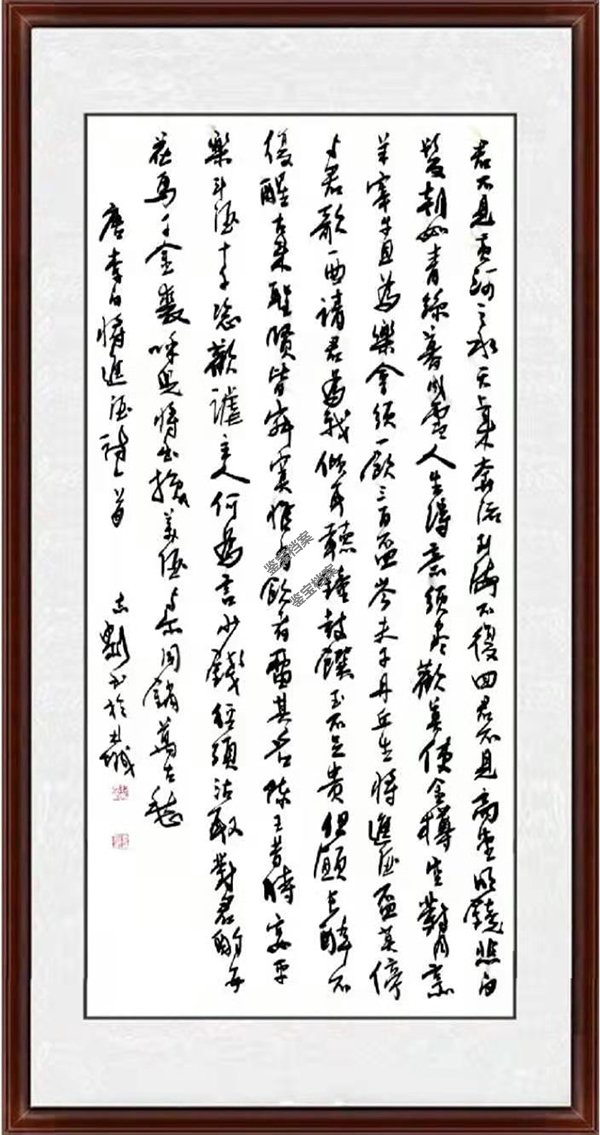 君不見黃河之水天上來奔流到海不復回君不見高堂明鏡悲白
髮朝如青絲暮成雪人生得意須盡歡莫使金樽空對月烹
羊宰牛且為樂會須一飲三百盃岑夫子丹丘生將進酒盃莫停
與君歌一曲請君為我傾耳聽鐘鼓饌玉不足貴但願長醉不
復醒古來聖賢皆寂寞惟有飲者留其名陳王昔時宴平
樂斗酒十千恣歡謔主人何為言少錢徑須沽取對君酌五
花馬千金裘呼兒將出換美酒與爾同銷萬古愁
唐李白將進酒詩一首 志剛書於
鉴宝档案
鉴宝档案